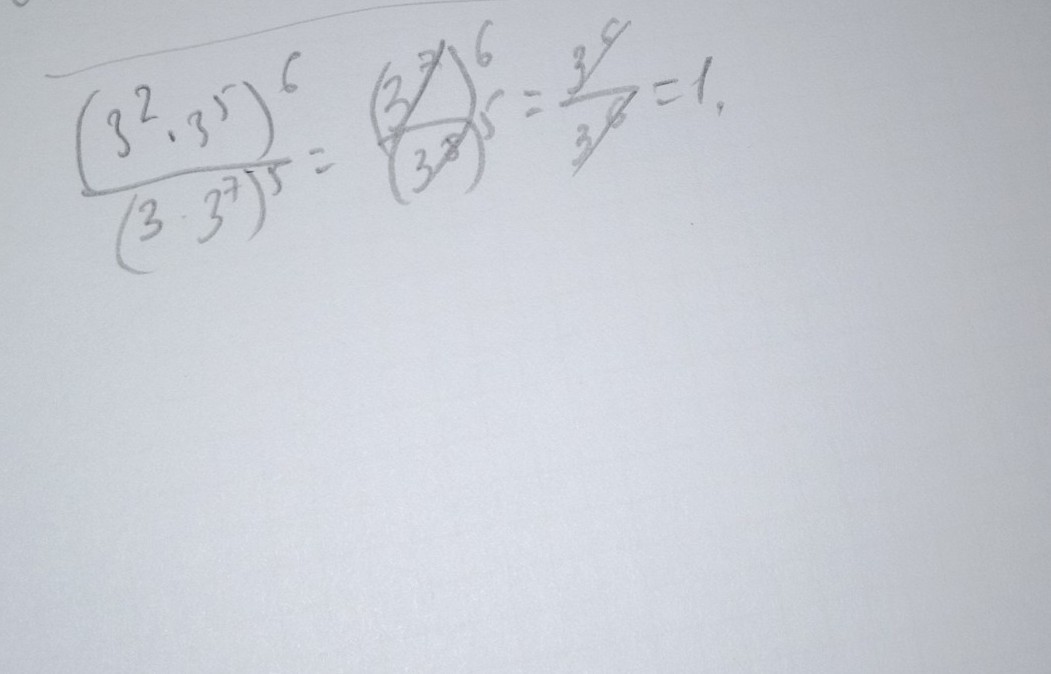 (3²·3⁵)⁶/(3·3⁷)⁵ = (3⁷)⁶/(3⁸)⁵ = 3⁶/3⁶ = 1.